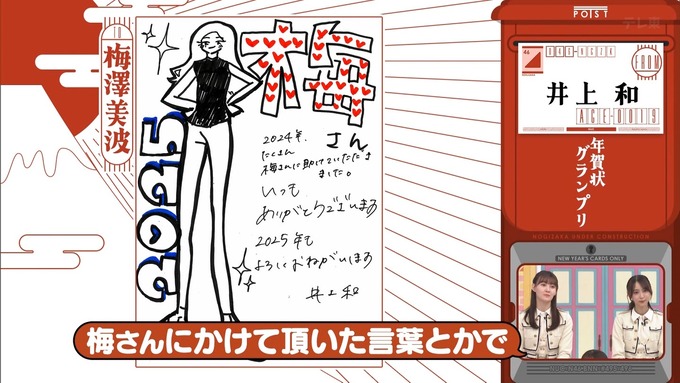 TO
梅澤美波
梅さん
2025
2024年、
たくさん
梅さんに助けていただき
ました。
いつも
ありがとうございます
2025年も
よろしくおねがいします
井上和
POIST
テレ東
46
FROM
井上 和
AGE=0019
年賀状
グランプリ
NOGIZAKA UNDER CONSTRUCTION
NEW YEAR'S CARDS ONLY
梅さんにかけて頂いた言葉とかで